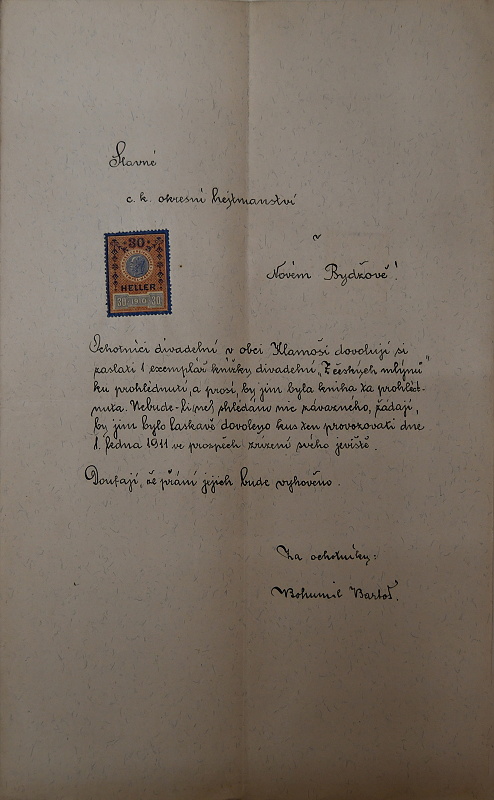 Slavné
c. k. okresní hejtmanství
v
Novém Bydžově!
30
HELLER
30 1910 30
Ochotníci divadelní v obci Klamoši dovolují si
zaslati 1 exemplář knížky divadelní „Z českých mlýnů"
ku prohlédnutí, a prosí, by jim byla kniha ta prohléd-
nuta. Nebude-li nej shledáno nic závazného, žádají,
by jim bylo laskavě dovoleno kus ten provozovati dne
1. ledna 1911 ve prospěch zřízení svého jeviště.
Doufají, že přání jejich bude vyhověno.
Za ochotníky:
Bohumil Bartoš.